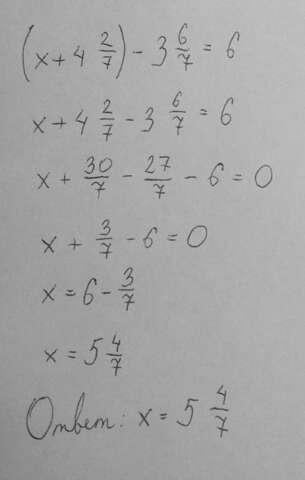 (x + 4 2/7) - 3 6/7 = 6
x + 4 2/7 - 3 6/7 = 6
x + 30/7 - 27/7 - 6 = 0
x + 3/7 - 6 = 0
x = 6 - 3/7
x = 5 4/7
Ответ: x = 5 4/7